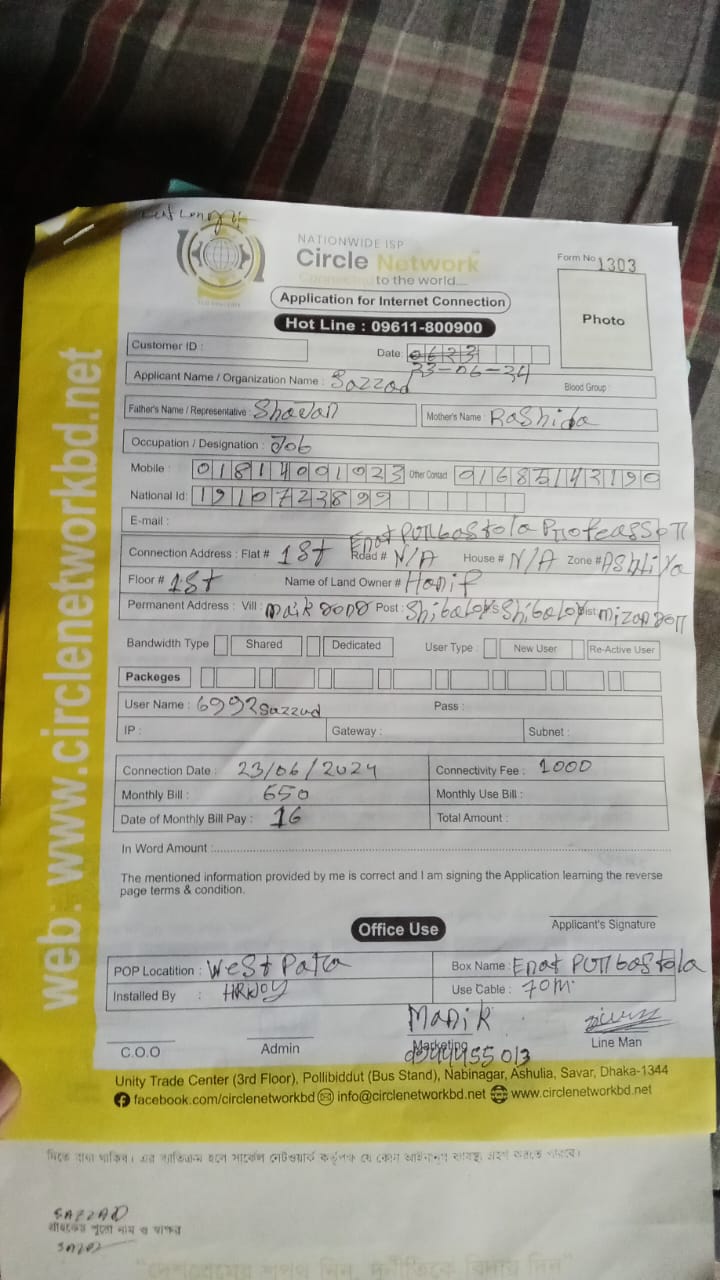 NATIONWIDE ISP
Circle Network
Connected to the world....
Form No 1303
Application for Internet Connection
Photo
Hot Line : 09611-800900
Customer ID :
Date: 0623
23-06-24
Applicant Name / Organization Name : Sazzad
Blood Group :
Father's Name / Representative : Shadan Mother's Name : Rashida
Occupation / Designation : Job
Mobile : 01814001023 Other Contact 01685143190
National Id: 1910723899
E-mail :
Connection Address : Flat # 1st Road # N/A House # N/A Zone # AShliya
Floor # 1st Name of Land Owner # Hanif
Permanent Address : Vill : Post : Shibaloy
Bandwidth Type Shared Dedicated User Type : New User Re-Active User
Packeges
User Name : 6992sazzad Pass :
IP : Gateway : Subnet :
Connection Date : 23/06/2024 Connectivity Fee : 1000
Monthly Bill : 650 Monthly Use Bill :
Date of Monthly Bill Pay : 16 Total Amount :
In Word Amount :
The mentioned information provided by me is correct and I am signing the Application learning the reverse
page terms & condition.
Office Use
Applicant's Signature
POP Locatition : West Para Box Name : Enat PUrbastola
Installed By : HRidoy Use Cable : 70m.
Manik
C.O.O Admin Marketing Line Man
Unity Trade Center (3rd Floor), Pollibiddut (Bus Stand), Nabinagar, Ashulia, Savar, Dhaka-1344
facebook.com/circlenetworkbd info@circlenetworkbd.net www.circlenetworkbd.net
web: www.circlenetworkbd.net
দিতে বাধ্য থাকিব। এর ব্যতিক্রম হলে সার্কেল নেটওয়ার্ক কর্তৃপক্ষ যে কোন আইনানুগ ব্যবস্থা গ্রহণ করতে পারবে।
SAZZAD
গ্রাহকের পুরো নাম ও স্বাক্ষর
"দেশপ্রেমের শপথ নিন, দুর্নীতিকে বিদায় দিন"